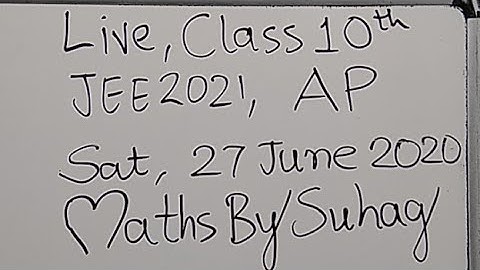 Live, Class 10th
JEE2021, AP
Sat, 27 June 2020
Maths By Suhag